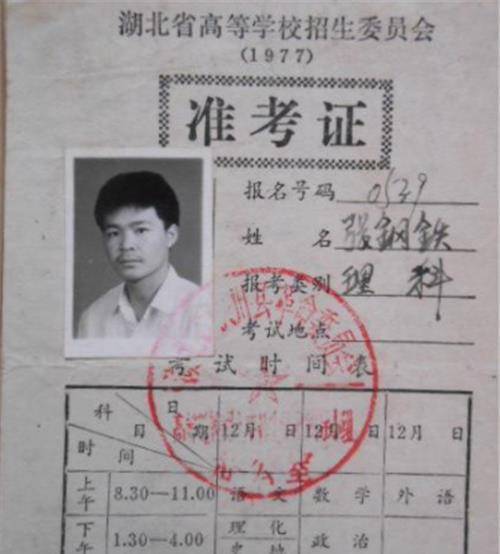 湖北省高等学校招生委员会
(1977)
准考证
报名号码 0539
姓 名 张钢铁
报考类别 理 科
考试地点
考试时间表
科 目 日 期 时 间 12月 日 12月 日 12月 日
上午 8.30—11.00 语 文 数 学 外 语
下午 1.30—4.00 理 化 政 治
史 地